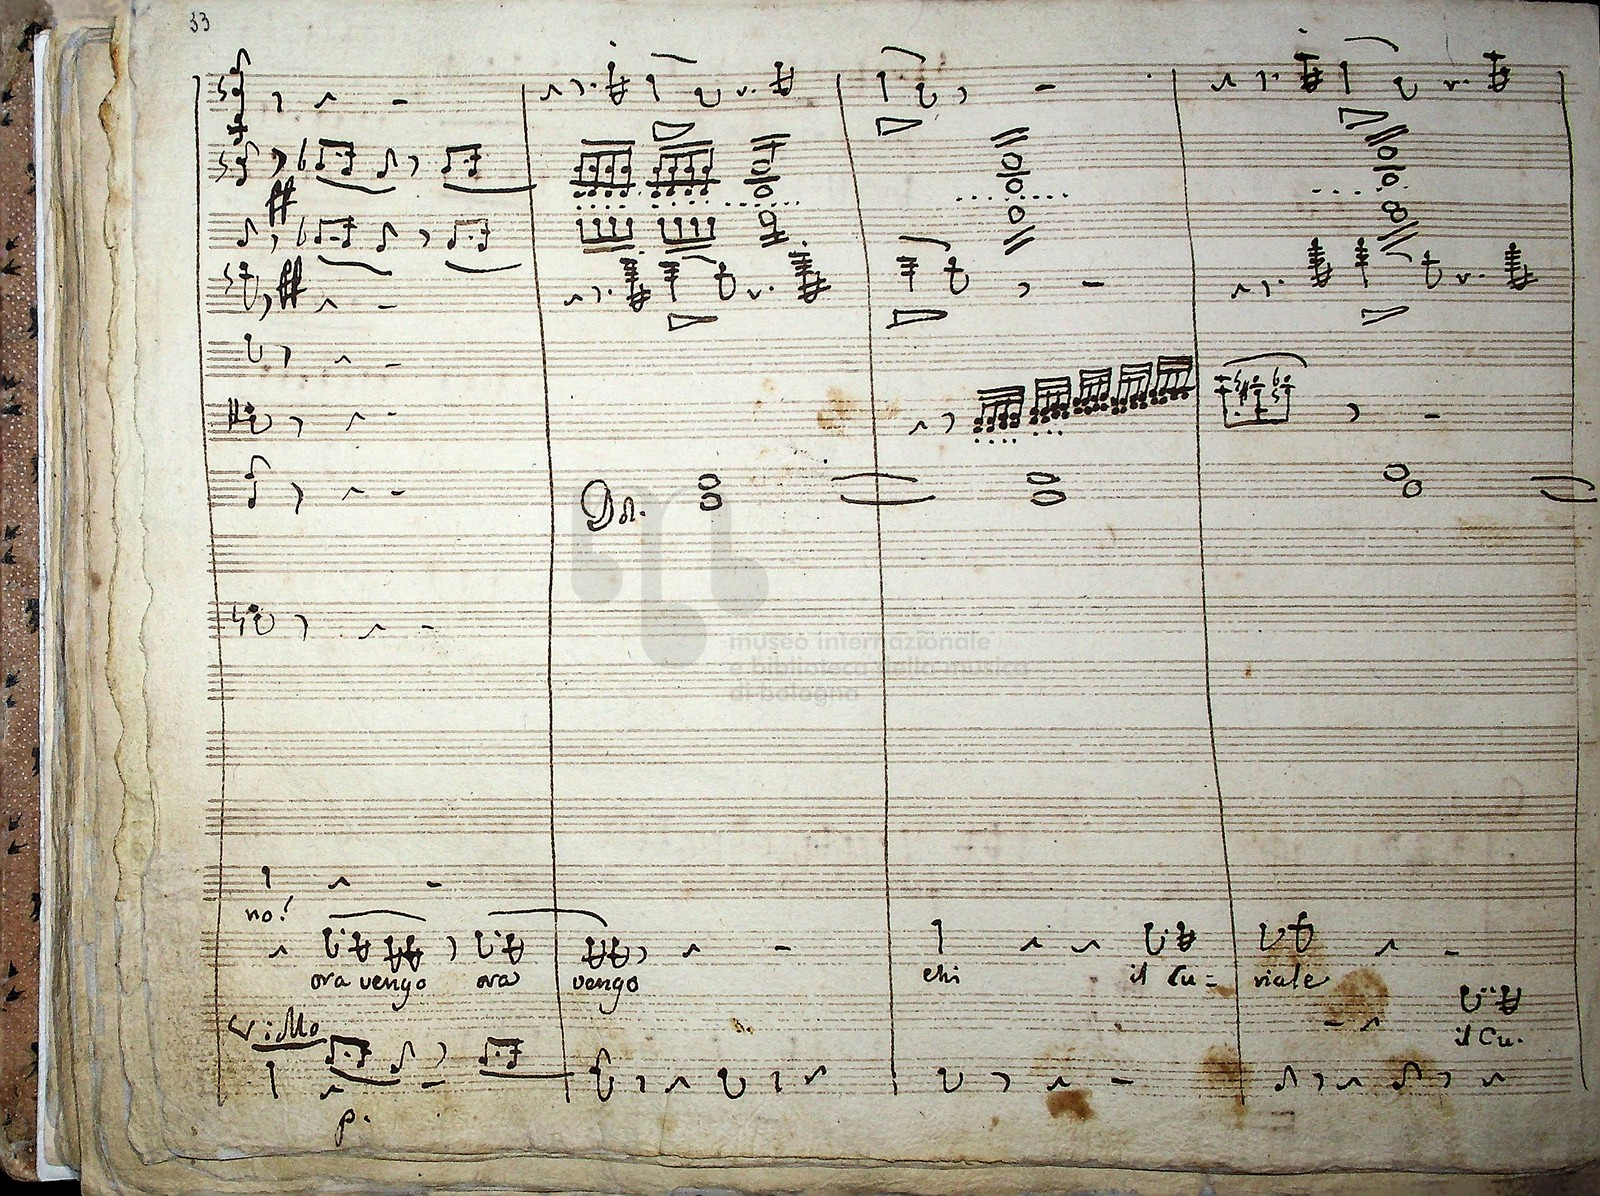 33
ff
ff
museo internazionale
e biblioteca della musica
di bologna
no!
ora vengo ora vengo chi il Cu= riale
il Cu.
p.